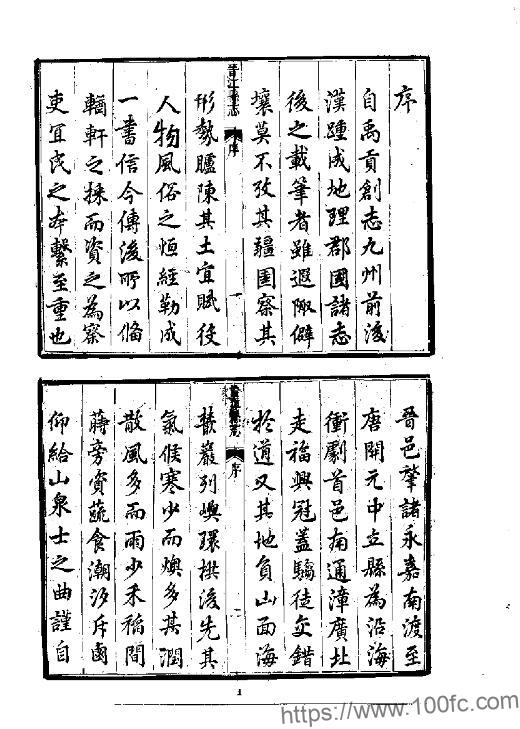 序
自禹貢創志九州前後
漢踵成地理郡國諸志
後之載筆者雖遐陬僻
壤莫不攷其疆圉察其
晉江縣志
序
一
形勢臚陳其土宜賦役
人物風俗之恒經勒成
一書信今傳後所以備
輶軒之採而資之為察
吏宜民之本繫至重也
晉邑肇諸永嘉南渡至
唐開元中立縣為沿海
衝劇首邑南通漳廣北
走福興冠蓋驕徒交錯
於道又其地負山面海
晉江縣志
序
二
巖列嶼環拱後先其
氣候寒少而燠多其潤
散風多而雨少禾稻間
蒔旁資蔬食潮汐斥鹵
仰給山泉士之曲謹自
1
https://www.100fc.com